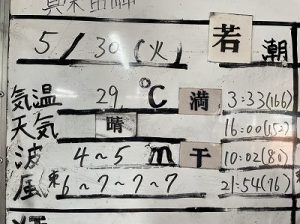 5/30(火) 若潮
気温 29℃ 満 3:33(166)
天気 晴 16:00(152)
波 4~5m 干 10:02(80)
風 東6~7~7~7 21:54(76)